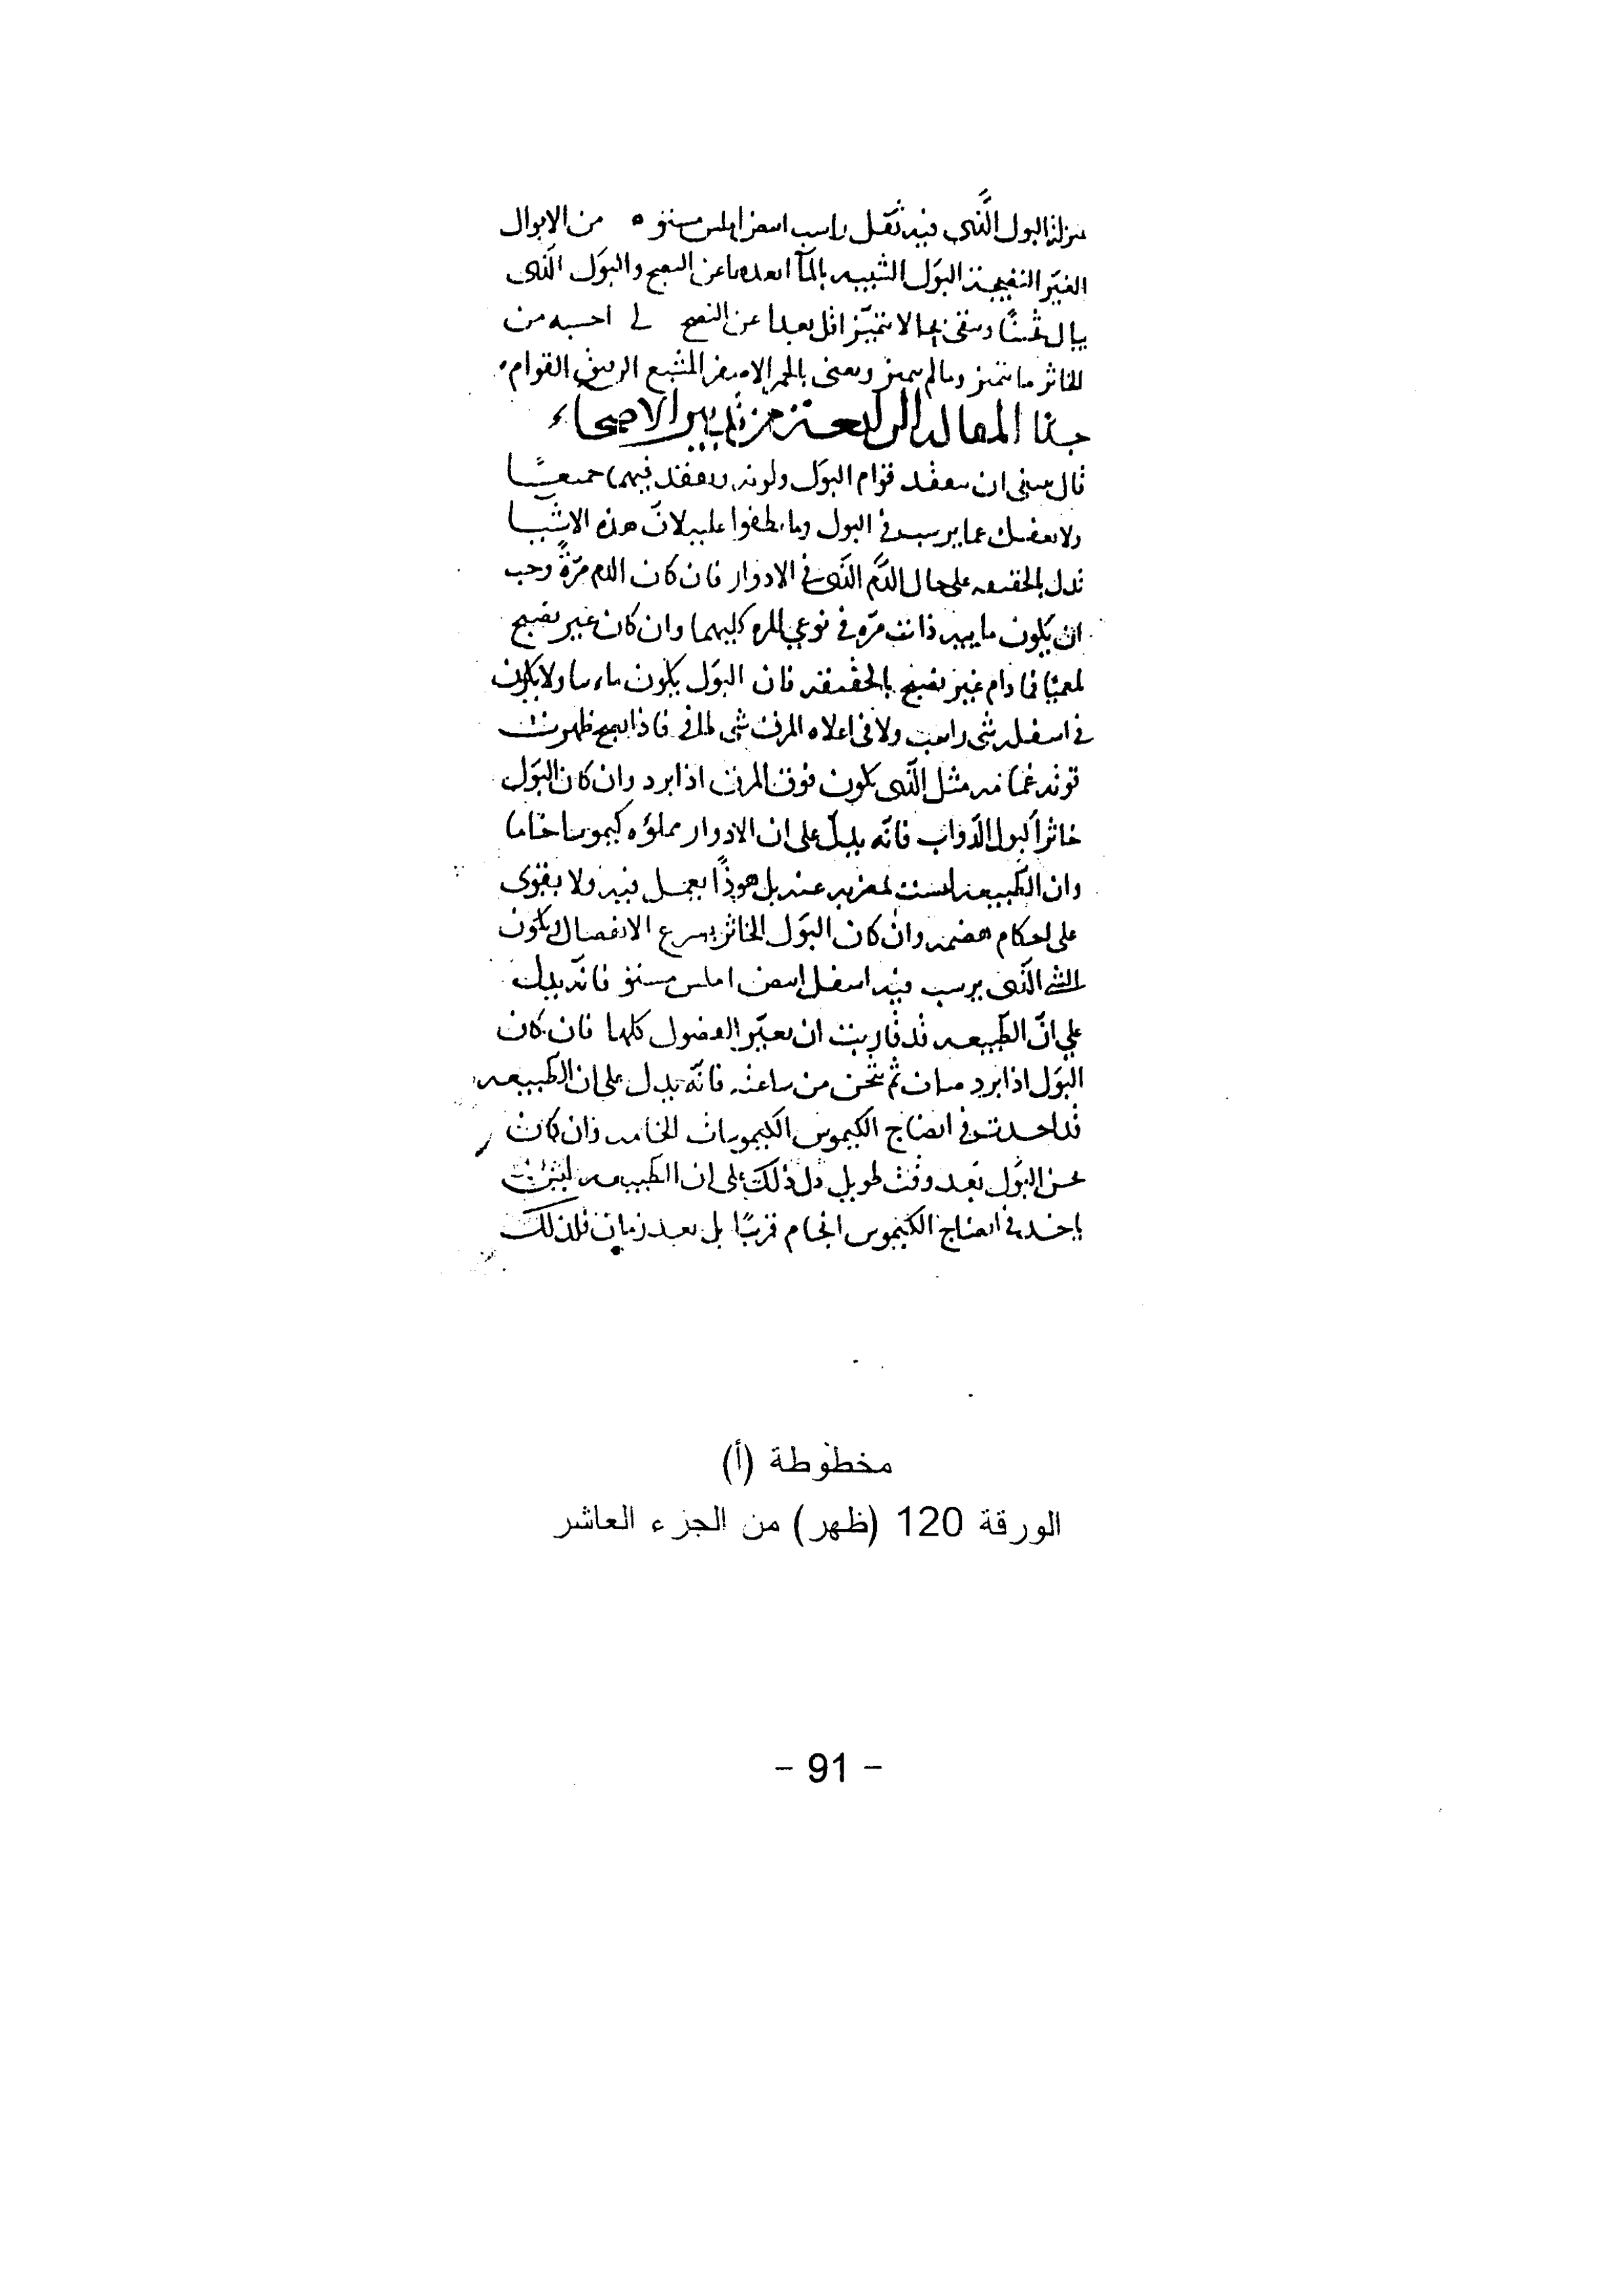 البول الذي فيه ثفل راسب ابيض املس مستو ٥ من الابوال
الغير النضيجة البول الشبيه بالمآ ابعدها عن النضج والبول الذى
يبال ثخينًا ويبقى بحاله لا يتميّز اقل بعدا عن النضج لى احسبه من
الخاثر ما يتميز وما لم يتميز ويعنى الاصفر المشبع الرقيق القوام
المقالة الرابعة من تدبير الاصحاء
قال ينبغى ان يتفقد قوام البول ولونه جميعًا
عما يرسب فى البول وما يطفوا عليه لانّ هذه الاشيا
تدل بالحقيقه على حال الدَّم الذى فى الاوراد فان كان الدم مرّة وجب
ان يكون ذا مرّه فى نوعي المره كليهما وان كان غير نضيج
بلغميًا فما دام غير نضيج بالحقيقه فان البول يكون مائيا ولا يكون
فى اسفله شى راسب ولا فى اعلاه شى طافى فاذا نضج ظهرت
فوقه غمامه مثل الذى يكون فوق المرق اذا برد وان كان البول
خاثراً كبول الدّواب فانّه يدلّ على ان الاوراد مملؤه كيموسا خاما
وان الطبيعه ليست عنه بل هوذا يعمل فيه ولا يقوى
على احكام هضمه وان كان البول الخاثر يسرع الانفصال ويكون
الشى الذى يرسب فيه اسفل ابيض املس مستو فانّه يدل
على انّ الطبيعه قد قاربت ان الفضول كلها فان كان
البول اذا برد ثم ثخن من ساعته فانّه يدل على ان الطبيعه
قد اخدت فى انضاج الكيموس الكيموسات الخامه وان كان
ثخن البول بعد وقت طويل دل ذلك على ان الطبيعه ليست
ياخذ فى انضاج الكيموس الخام قريبًا بل بعد زمان فلذلك
مخطوطة (أ)
الورقة 120 (ظهر) من الجزء العاشر
- 91 -